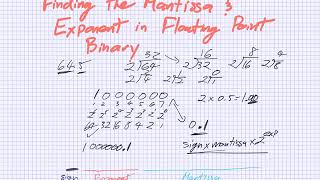 Finding the Mantissa &
Exponent in Floating Point
Binary
64.5
32 16 8 4
2)64 2)32 2)16 2)8
2 1 0
2)4 2)2 2)1
1 0 0 0 0 0 0
1 2 3 4 5 6 7
2 x 0.5 = 1.00
64 32 16 8 4 2 1
0.1
1000000.1
sign x mantissa x 2
sign Exponent Mantissa